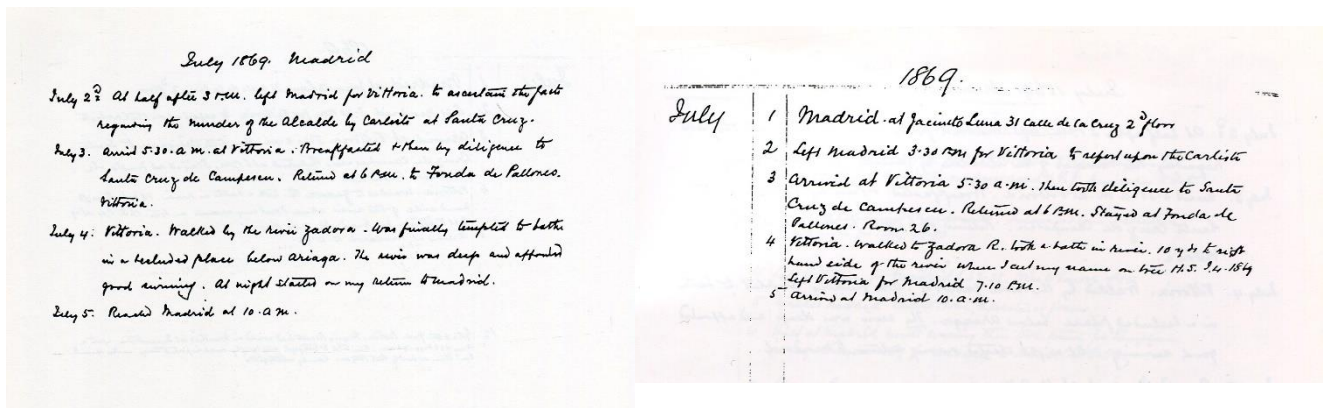 July 1869. Madrid
July 2d. At half after 3 P.M. left Madrid for Vittoria. to ascertain the facts
regarding the murder of the Alcalde by Carlists at Santa Cruz.
July 3. Arrid 5.30. a.m. at Vittoria. Breakfasted & then by diligence to
Santa Cruz de Campescu. Returned at 6 P.M. to Fonda de Pallones.
Vittoria.
July 4. Vittoria. Walked by the river Zadora. Was finally tempted to bathe
in a secluded place below Ariaga. The river was deep and afforded
good swimming. At night started on my return to Madrid.
July 5. Reached Madrid at 10. a.m.
1869.
July 1 Madrid. at Jacinto Luna 31 Calle de la Cruz 2d floor
2 Left Madrid 3.30 P.M. for Vittoria to report upon the Carlists
3 Arrived at Vittoria 5.30 a.m. then took diligence to Santa
Cruz de Campescu. Returned at 6 P.M. Stayed at Fonda de
Pallones. Room 26.
4 Vittoria. Walked to Zadora R. took a bath in river. 10 yds to right
hand side of the river where I cut my name on tree H.S. J.4.1869
Left Vittoria for Madrid 7.10 P.M.
5 Arrived at Madrid 10. a.m.